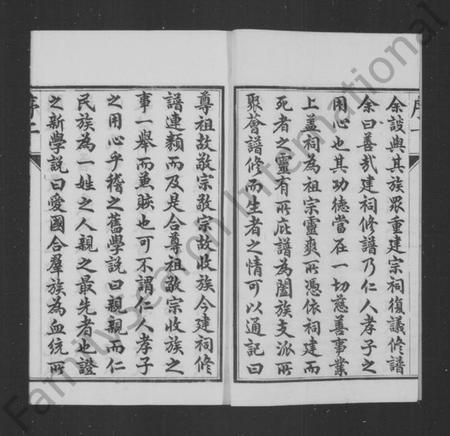 序一
余談與其族眾重建宗祠復議修譜
余曰善哉建祠修譜乃仁人孝子之
用心也其功德當在一切慈善事業
上蓋祠為祖宗靈爽所憑依祠建而
死者之靈有所庇譜為闔族支派所
聚薈譜修而生者之情可以通記曰
尊祖故敬宗敬宗故收族今建祠修
譜連類而及是合尊祖敬宗收族之
事一舉而兼賅也可不謂仁人孝子
之用心乎稽之舊學說曰親親而仁
民族為一姓之人親之最先者也證
之新學說曰愛國合羣族為血統所
序二
FamilySearch International